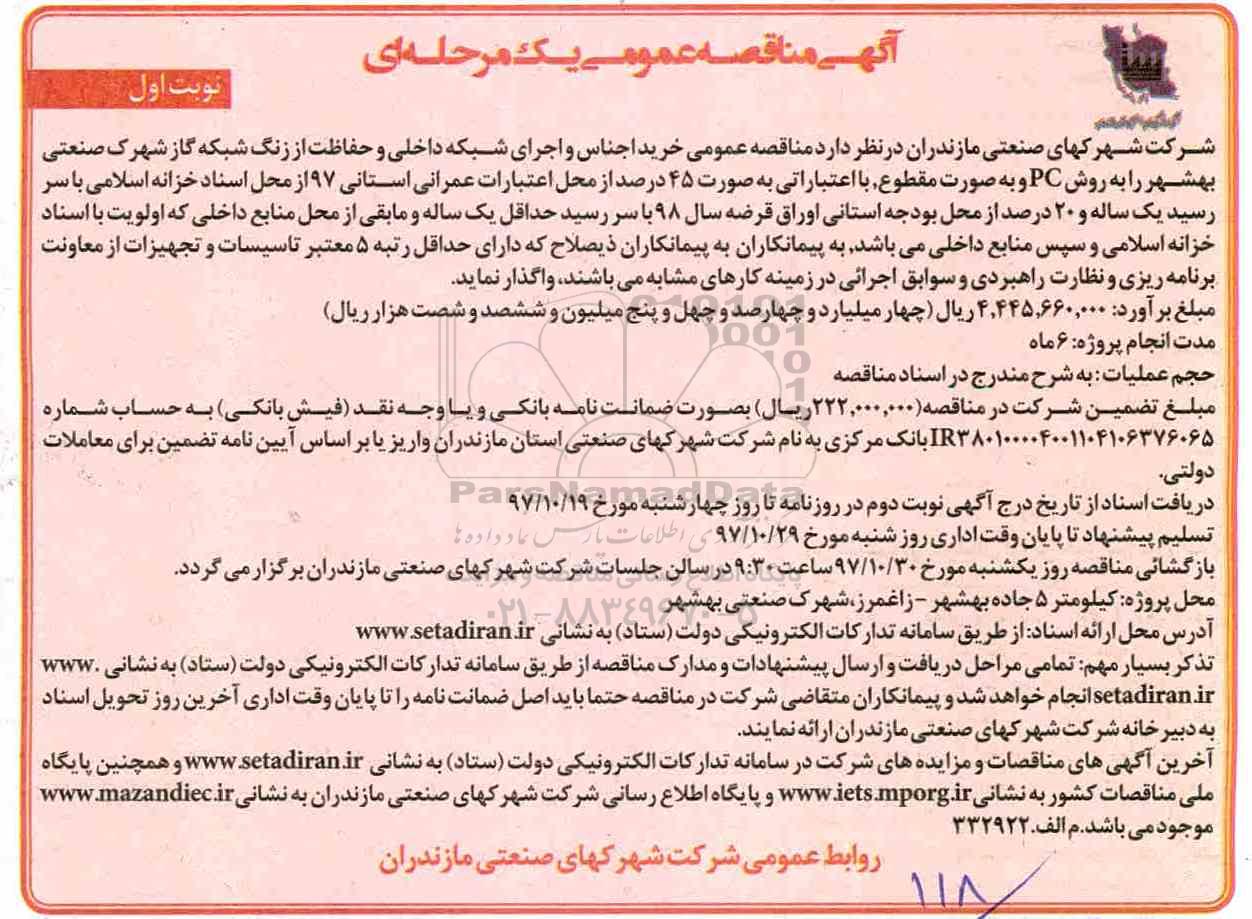 آگهی مناقصه عمومی یک مرحله‌ای
نوبت اول
شرکت شهرکهای صنعتی مازندران درنظر دارد مناقصه عمومی خرید اجناس و اجرای شبکه داخلی و حفاظت از زنگ شبکه گاز شهرک صنعتی
بهشهر را به روش PC و به صورت مقطوع, با اعتباراتی به صورت ۴۵ درصد از محل اعتبارات عمرانی استانی ۹۷ از محل اسناد خزانه اسلامی با سر
رسید یک ساله و ۲۰ درصد از محل بودجه استانی اوراق قرضه سال ۹۸ با سر رسید حداقل یک ساله و مابقی از محل منابع داخلی که اولویت با اسناد
خزانه اسلامی و سپس منابع داخلی می باشد, به پیمانکاران به پیمانکاران ذیصلاح که دارای حداقل رتبه ۵ معتبر تاسیسات و تجهیزات از معاونت
برنامه ریزی و نظارت راهبردی و سوابق اجرائی در زمینه کارهای مشابه می باشند، واگذار نماید.
مبلغ برآورد: ۴,۴۴۵,۶۶۰,۰۰۰ ریال (چهار میلیارد و چهارصد و چهل و پنج میلیون و ششصد و شصت هزار ریال)
مدت انجام پروژه: ۶ ماه
حجم عملیات: به شرح مندرج در اسناد مناقصه
مبلغ تضمین شرکت در مناقصه(۲۲۲,۰۰۰,۰۰۰ریال) بصورت ضمانت نامه بانکی و یا وجه نقد (فیش بانکی) به حساب شماره
IR۳۸۰۱۰۰۰۰۴۰۰۱۱۰۴۱۰۶۳۷۶۰۶۵ بانک مرکزی به نام شرکت شهرکهای صنعتی استان مازندران واریز یا بر اساس آیین نامه تضمین برای معاملات
دولتی.
دریافت اسناد از تاریخ درج آگهی نوبت دوم در روزنامه تا روز چهارشنبه مورخ ۹۷/۱۰/۱۹
تسلیم پیشنهاد تا پایان وقت اداری روز شنبه مورخ ۹۷/۱۰/۲۹
بازگشائی مناقصه روز یکشنبه مورخ ۹۷/۱۰/۳۰ ساعت ۹:۳۰ در سالن جلسات شرکت شهرکهای صنعتی مازندران برگزار می گردد.
محل پروژه: کیلومتر ۵ جاده بهشهر - زاغمرز، شهرک صنعتی بهشهر
آدرس محل ارائه اسناد: از طریق سامانه تدارکات الکترونیکی دولت (ستاد) به نشانی www.setadiran.ir
تذکر بسیار مهم: تمامی مراحل دریافت و ارسال پیشنهادات و مدارک مناقصه از طریق سامانه تدارکات الکترونیکی دولت (ستاد) به نشانی www.
setadiran.ir انجام خواهد شد و پیمانکاران متقاضی شرکت در مناقصه حتما باید اصل ضمانت نامه را تا پایان وقت اداری آخرین روز تحویل اسناد
به دبیرخانه شرکت شهرکهای صنعتی مازندران ارائه نمایند.
آخرین آگهی های مناقصات و مزایده های شرکت در سامانه تدارکات الکترونیکی دولت (ستاد) به نشانی www.setadiran.ir و همچنین پایگاه
ملی مناقصات کشور به نشانی www.iets.mporg.ir و پایگاه اطلاع رسانی شرکت شهرکهای صنعتی مازندران به نشانی www.mazandiec.ir
موجود می باشد. م الف. ۳۳۲۹۲۲
روابط عمومی شرکت شهرکهای صنعتی مازندران
۱۱۸
ParsNamadData
پایگاه اطلاع رسانی مناقصه و مزایده
۰۲۱-۸۸۳۴۹۶۷۰-۵